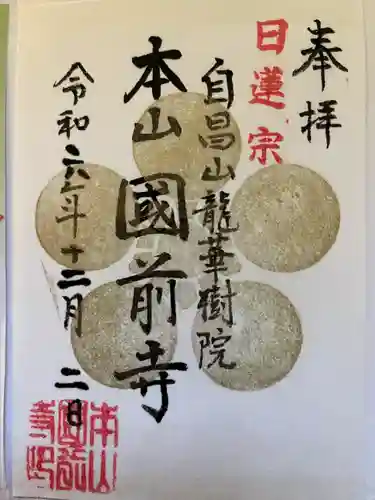 奉拝
日蓮宗
自昌山龍華樹院
本山國前寺
令和六年十二月二日
本山
國前
寺印